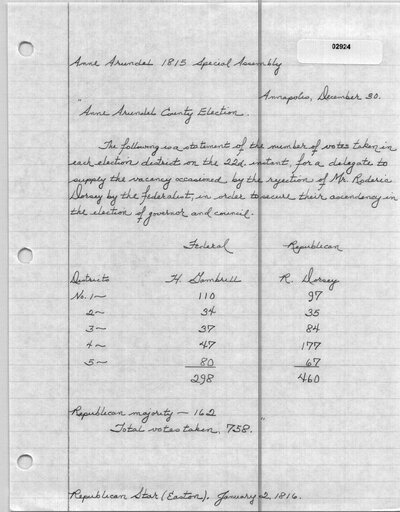 02924
Anne Arundel 1815 Special Assembly
Annapolis, December 30.
"Anne Arundel County Election.
The following is a statement of the number of votes taken in
each election district on the 22d, instant, for a delegate to
supply the vacancy occasioned by the rejection of Mr. Roderic
Dorsey by the federalist, in order to secure their ascendency in
the election of governor and council.
Federal Republican
Districts H. Gambrill R. Dorsey
No. 1~ 110 97
2~ 34 35
3~ 37 84
4~ 47 177
5~ 80 67
298 460
Republican majority — 162
Total votes taken, 758. "
Republican Star (Easton). January 2, 1816.